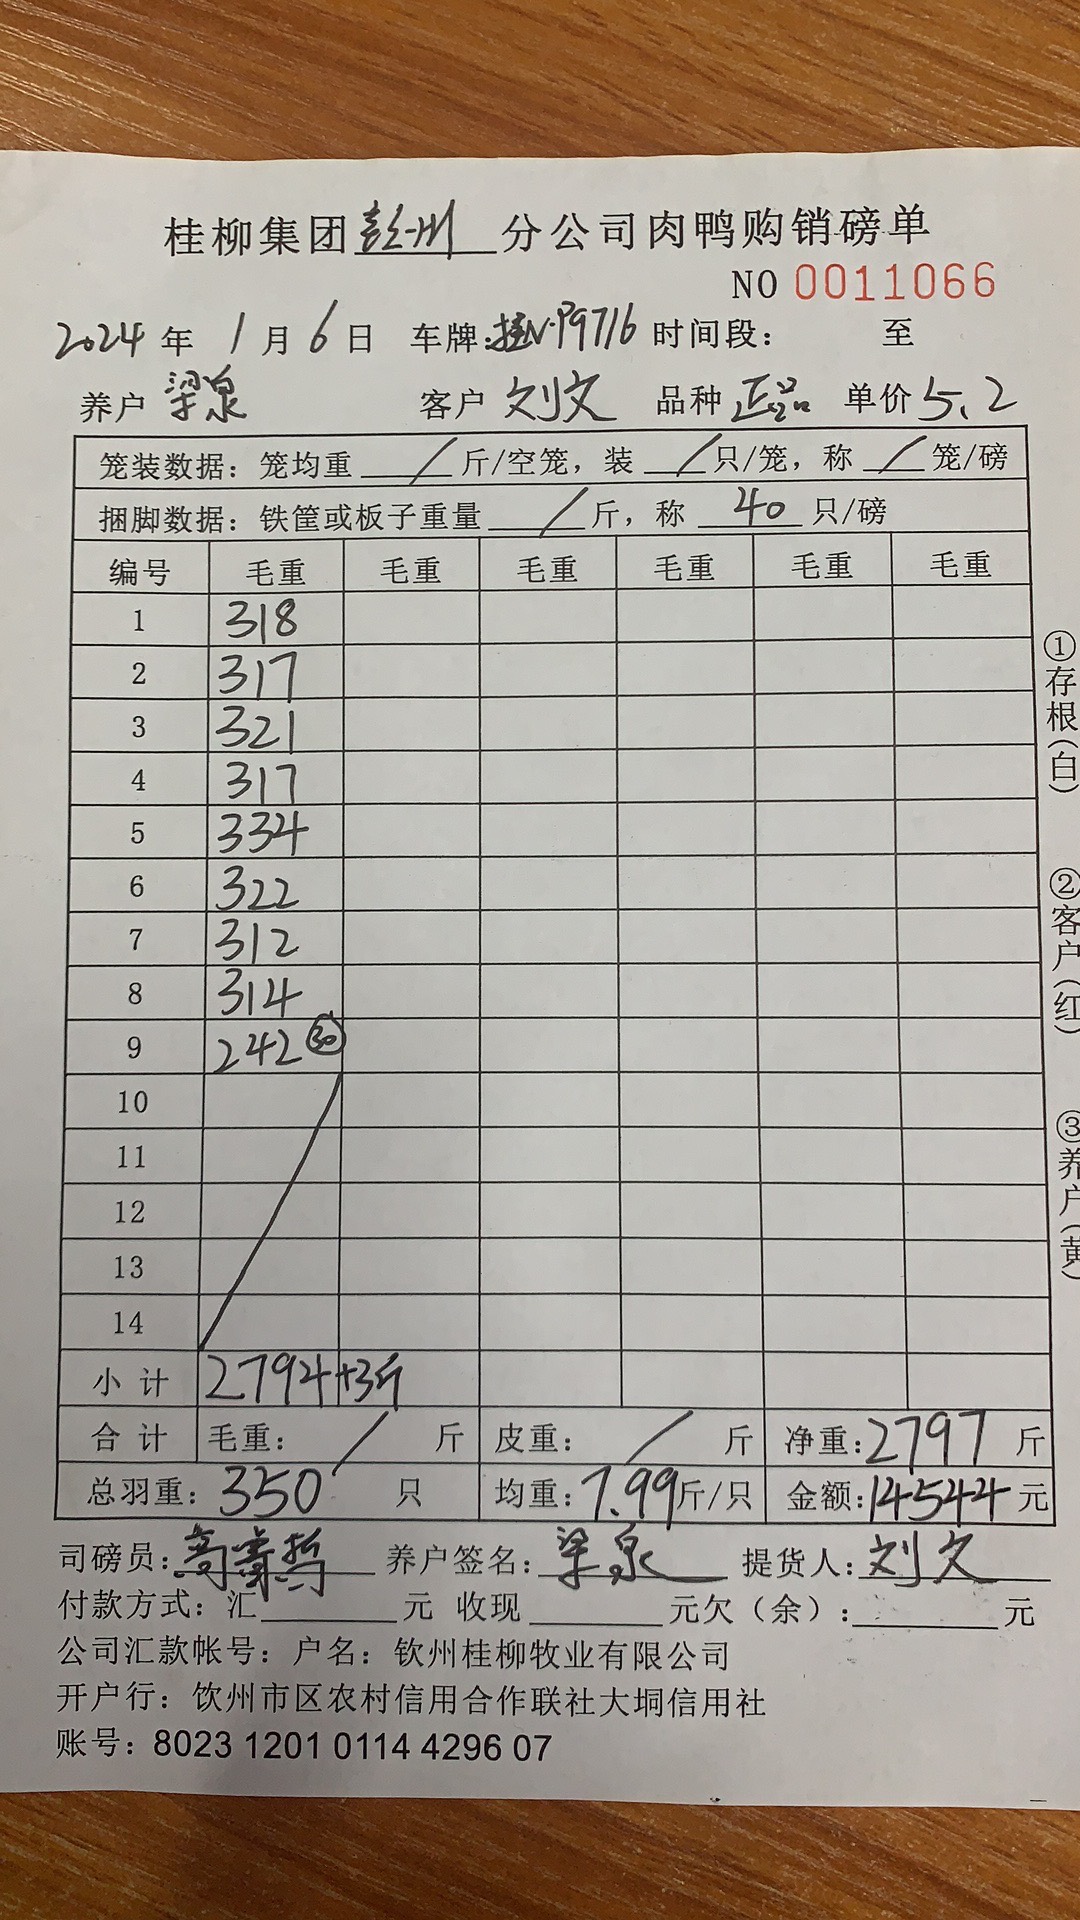 桂柳集团彭州分公司肉鸭购销磅单
NO 0011066
2024年1月6日 车牌:桂N·P9716 时间段: 至
养户 梁泉 客户 刘文 品种 正品 单价 5.2
笼装数据: 笼均重 / 斤/空笼, 装 / 只/笼, 称 / 笼/磅
捆脚数据: 铁筐或板子重量 / 斤, 称 40 只/磅
编号 毛重 毛重 毛重 毛重 毛重 毛重
1 318
2 317
3 321
4 317
5 334
6 322
7 312
8 314
9 242 30
10
11
12
13
14
小计 2794+3斤
合计 毛重: / 斤 皮重: / 斤 净重: 2797 斤
总羽重: 350 只 均重: 7.99 斤/只 金额: 14544 元
司磅员: 养户签名: 梁泉 提货人: 刘文
付款方式: 汇 元 收现 元欠(余): 元
公司汇款帐号: 户名: 钦州桂柳牧业有限公司
开户行: 钦州市区农村信用合作联社大垌信用社
账号: 8023 1201 0114 4296 07
①存根(白)
②客户(红)
③养户(黄)